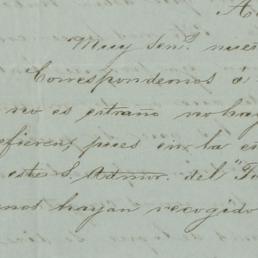 A
Muy Senr. nues
Correspondemos á
no es estraño no hay
efieren, pues en la es
este S. Admor. del "Fa
enos hayan recogido